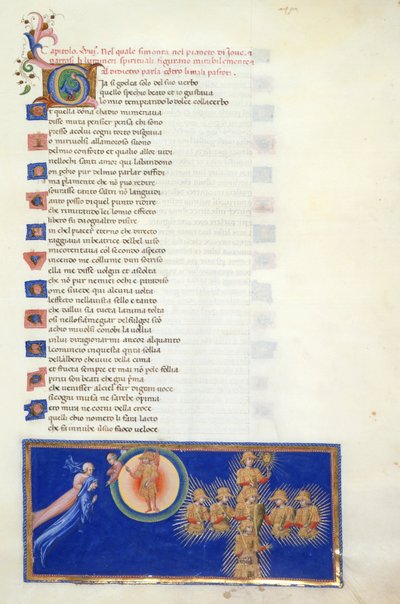 Capitolo .xviij. Nel quale si monta nel pianeto di Joue. et
a di dietro parla contro li mali pastori.
Gia si godea solo del suo uerbo
quello spechio beato et io gustaua
lo mio temprando lo dolce collacerbo
Et quella dona chadio menaua
disse muta pensier pensa chi sono
presso acolui cogni torto disgraua
Io mi uolsi allamoroso suono
delmio conforto et qualio allor uidi
nellochi santi amor qui labandono
Non perche pur delmio parlar diffidi
ma plamente che nō puo redire
sourasse tanto saltri nō languidi
Tanto posso di quel punto ridire
che rimirando lei lomio effecto
libero fu daognaltro disire
che piacer eterno che directo
raggiaua in beatrice del bel uiso
mi contentaua col secondo aspecto
Vincendo me collume dun sorriso
ella me disse uolgiti et ascolta
che nō pur nemiei ochi e paradiso
Come si uede qui alcuna uolta
leffecto nella uista sello e tanto
che dallui sia tucta lanima tolta
Cosi nello fiamegiar del folgor sco
achio mi uolsi conobi la uoglia
in lui di ragionarmi ancor alquanto
El comincio in questa qnta soglia
dellalbero che uiue della cima
et fructa sempre et mai nō pde foglia
spirti son beati che giu pma
che uenisser al ciel fur di gran uoce
si cogni musa ne sarebe opima
Pero mira ne corni della croce
quelli chio nomero li fara lacto
che fa innube il suo fuoco ueloce